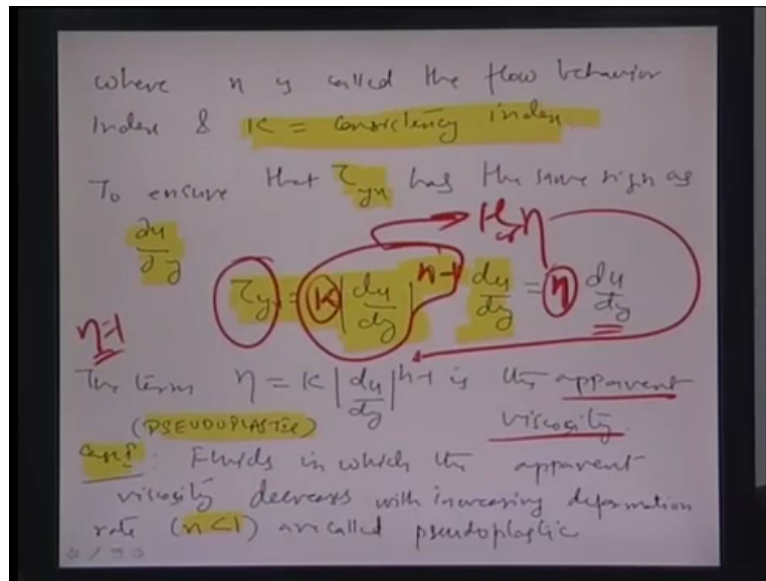 where n is called the flow behavior
index & K = consistency index.
To ensure that τyx has the same sign as
∂u/∂y
τy = K |du/dy|^n-1 du/dy = η du/dy
n-1
The term η = K |du/dy|^n-1 is the apparent
viscosity.
(PSEUDOPLASTIC)
Case I: Fluids in which the apparent
viscosity decreases with increasing deformation
rate (n<1) are called pseudoplastic